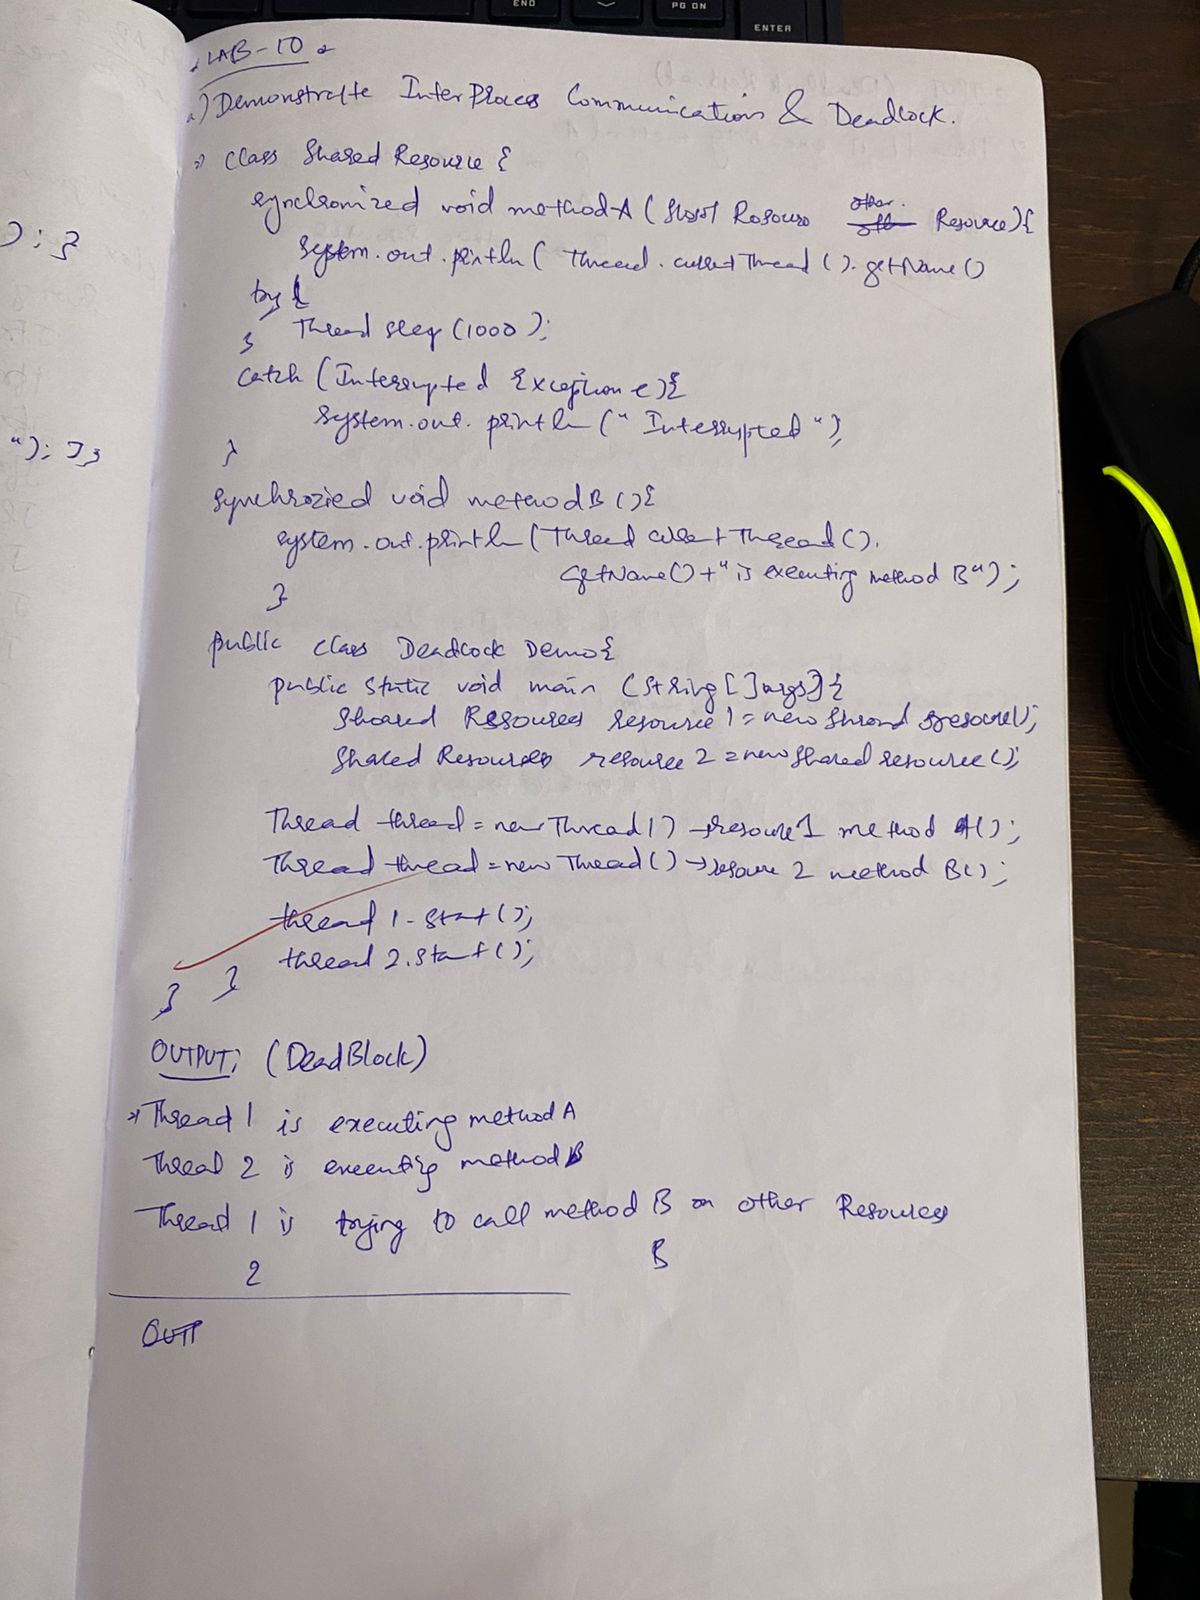 END
PG ON
ENTER
LAB-10
a) Demonstrate InterProcess Communication & Deadlock.
=> class Shared Resource {
synchronized void method A ( Resource) {
other
System.out.println( Thread.currentThread().getName()
try {
} Thread sleep (1000);
catch (Interrupted Exception e){
System.out.println (" Interrupted ");
}
synchrozied void method B () {
system.out.println (Thread current Thread().
getName() + " is executing method B");
}
public class Deadlock Demo {
public static void main (String [] args) {
Shared Resources resource 1 = new Shared resource();
Shared Resources resource 2 = new Shared resource();
Thread thread = new Thread () → resource 1 method A();
Thread thread = new Thread () → resoure 2 method B();
thread 1. start ();
thread 2. start ();
}
}
OUTPUT; (DeadBlock)
=> Thread 1 is executing method A
Thread 2 is executing method B
Thread 1 is trying to call method B on other Resources
2 B
OUTP
); }
"); }}